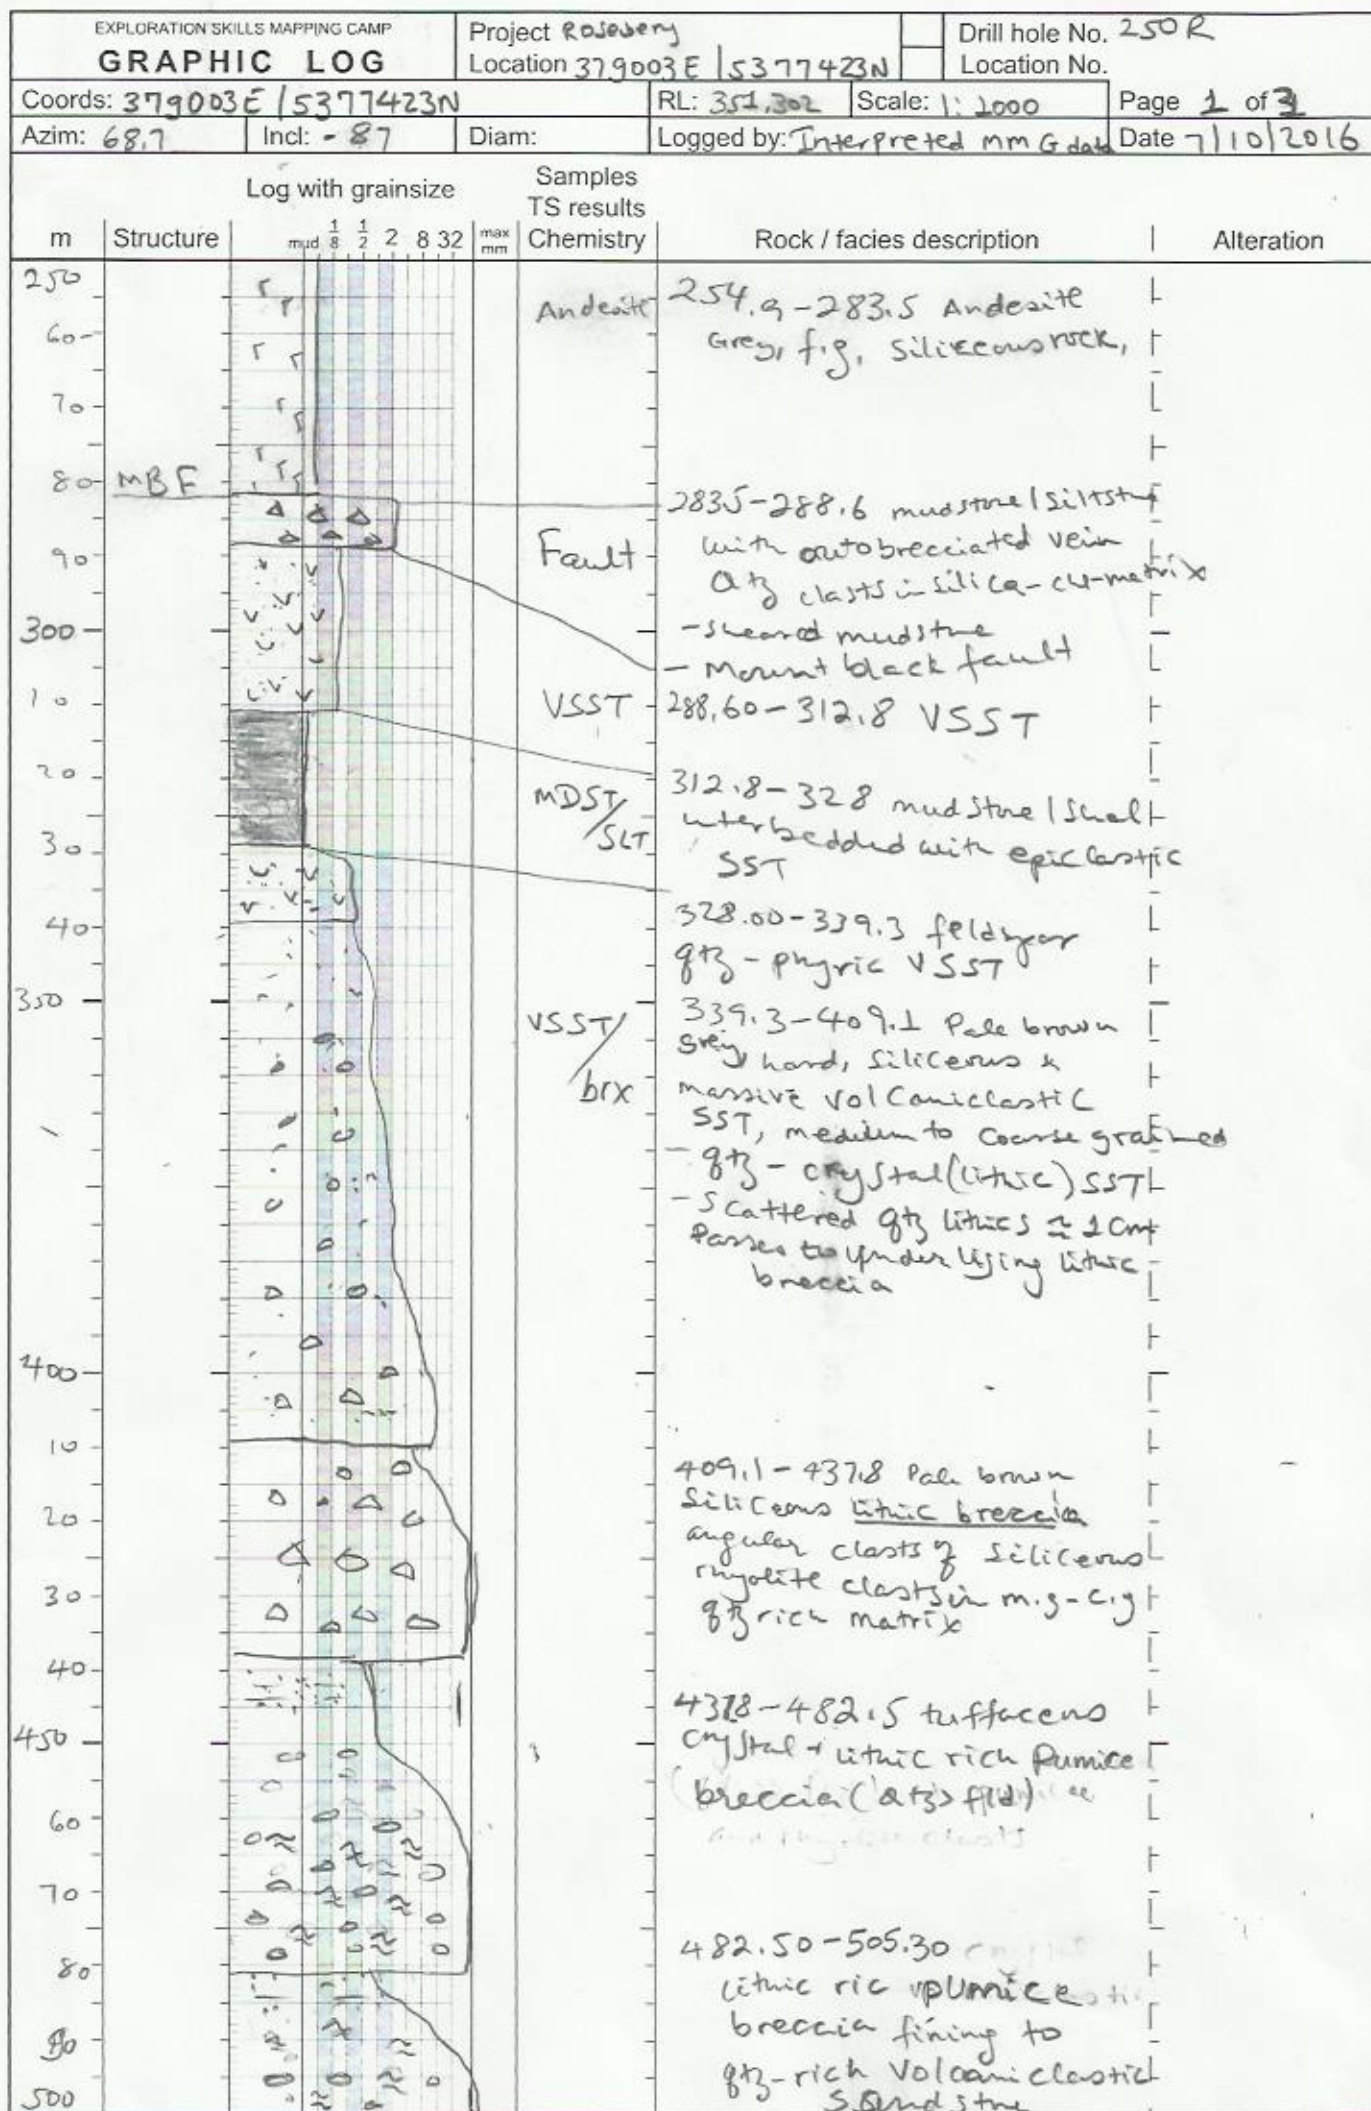 EXPLORATION SKILLS MAPPING CAMP
GRAPHIC LOG
Project Rosebery
Location 379003E / 5377423N
Drill hole No. 250R
Location No.
Coords: 379003E / 5377423N
RL: 351.302
Scale: 1:1000
Page 1 of 3
Azim: 68.7
Incl: - 87
Diam:
Logged by: Interpreted MMG data
Date 7/10/2016
m
Structure
Log with grainsize
mud 1/8 1/2 2 8 32
max mm
Samples
TS results
Chemistry
Rock / facies description
Alteration
250
60
70
80
90
300
10
20
30
40
350
400
10
20
30
40
450
60
70
80
90
500
MBF
Andesite
Fault
VSST
MDST/
SLT
VSST/
brx
254.9-283.5 Andesite
Grey, f.g, siliceous rock,
2835-288.6 mudstone / Siltstne
with autobrecciated vein
Qtz clasts in silica-chl-matrix
- sheared mudstne
- Mount black fault
288.60-312.8 VSST
312.8-328 mudstone / Shale
interbedded with epiclastic
SST
328.00-339.3 feldspar
qtz-phyric VSST
339.3-409.1 Pale brown
grey, hard, siliceous &
massive volcaniclastic
SST, medium to coarse grained
- qtz-crystal (lithic) SST
- Scattered qtz lithics ≈ 1cm
Passes to underlying lithic
breccia
409.1-437.8 Pale brown
Siliceous lithic breccia
angular clasts of siliceous
rhyolite clasts in m.g-c.g
qtz rich matrix
437.8-482.5 tuffaceous
crystal + lithic rich Pumice
breccia (Qtz > fld)
482.50-505.30
Lithic ric pumice
breccia fining to
qtz-rich Volcaniclastic
Sandstne